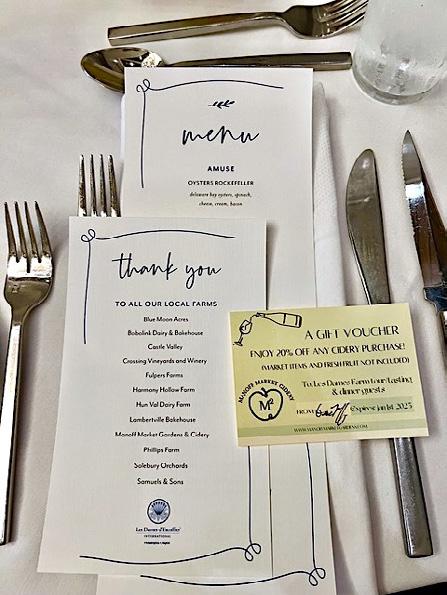 menu
AMUSE
OYSTERS ROCKEFELLER
delaware bay oysters, spinach,
cheese, cream, bacon
thank you
TO ALL OUR LOCAL FARMS
Blue Moon Acres
Bobolink Dairy & Bakehouse
Castle Valley
Crossing Vineyards and Winery
Fulpers Farms
Harmony Hollow Farm
Hun Val Dairy Farm
Lambertville Bakehouse
Manoff Market Gardens & Cidery
Phillips Farm
Solebury Orchards
Samuels & Sons
Les Dames d'Escoffier
INTERNATIONAL
Philadelphia Chapter
A GIFT VOUCHER
ENJOY 20% OFF ANY CIDERY PURCHASE!
(MARKET ITEMS AND FRESH FRUIT NOT INCLUDED)
MANOFF MARKET CIDERY
M2
To: Les Dames Farm tour/tasting
& dinner guests
FROM: Expires: Jan 1st 2025
WWW.MANOFFMARKETGARDENS.COM